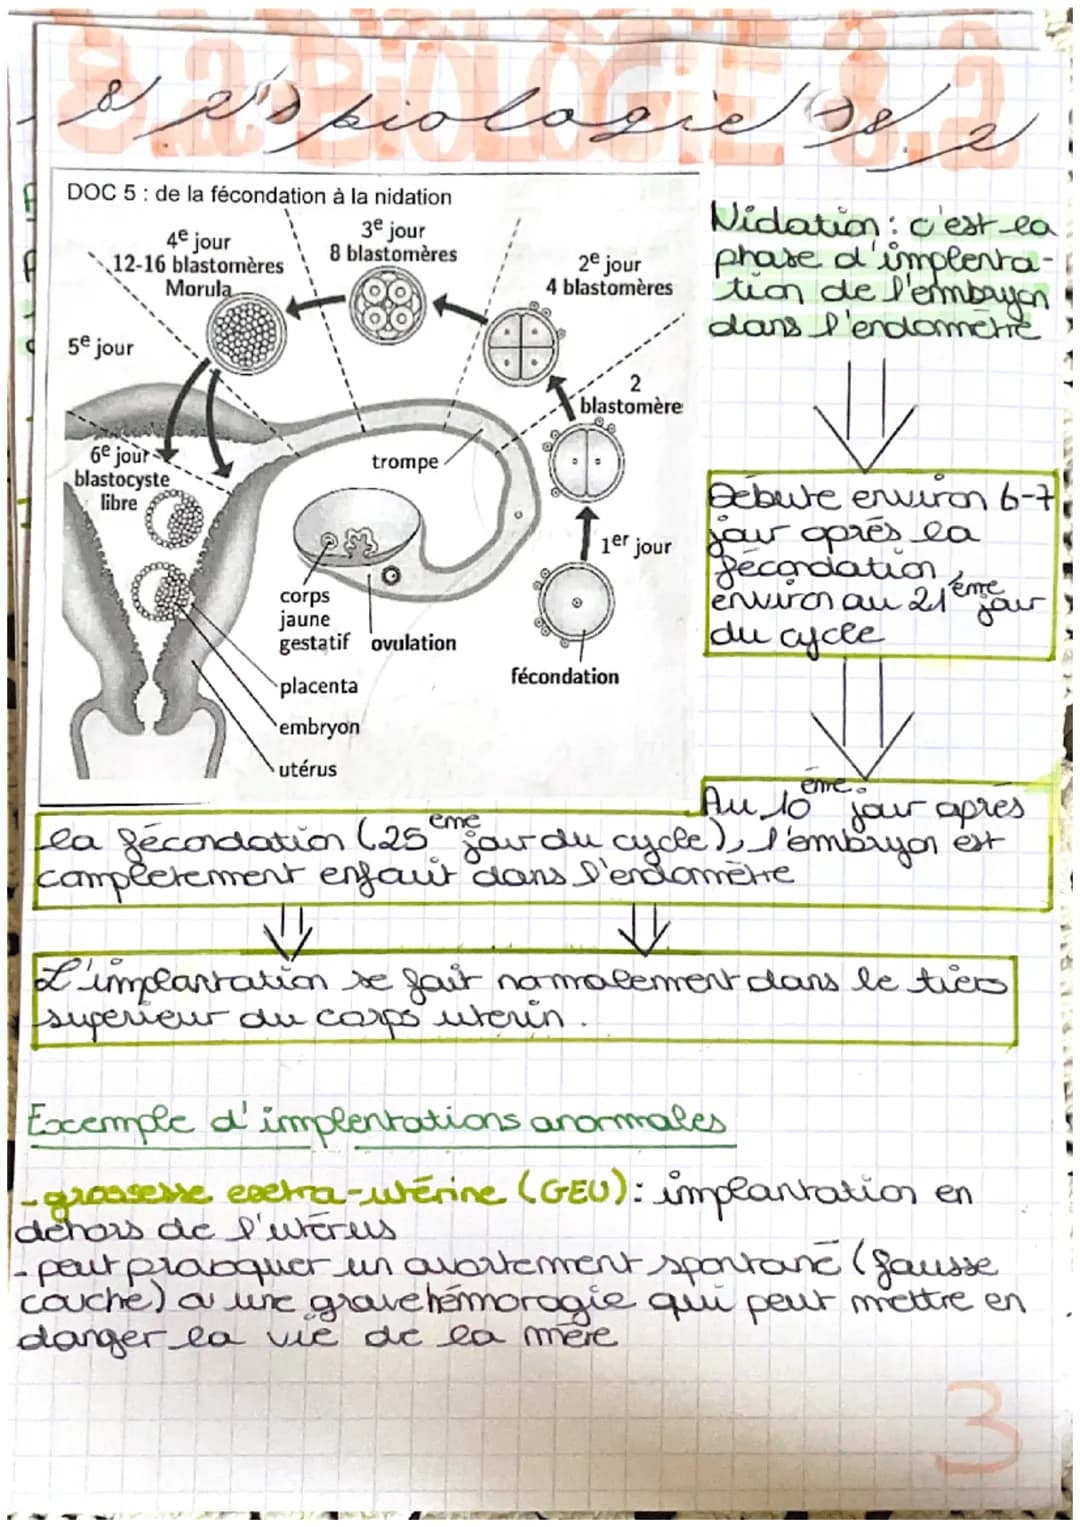 8.2 BIOLOGIE 8.2
biologie 8.2
DOC 5 : de la fécondation à la nidation
4e jour
12-16 blastomères
Morula
3e jour
8 blastomères
2e jour
4 blastomères
5e jour
2
blastomère
6e jour
blastocyste
libre
trompe
1er jour
corps
jaune
gestatif
ovulation
fécondation
placenta
embryon
utérus
Nidation : c'est la
phase d'implenta-
tion de l'embryon
dans l'endomètre
Débute environ 6-7
jour après la
fécondation,
environ au 21ème jour
du cycle
Au 10ème jour après
la fécondation (25ème jour du cycle), l'embryon est
complètement enfouit dans l'endomètre
L'implantation se fait normalement dans le tiers
supérieur du corps utérin.
Exemple d'implentations anormales
- grossesse extra-utérine (GEU) : implantation en
dehors de l'utérus
- peut provoquer un avortement spontané (fausse
couche) a une grave hémorogie qui peut mettre en
danger la vie de la mère
3